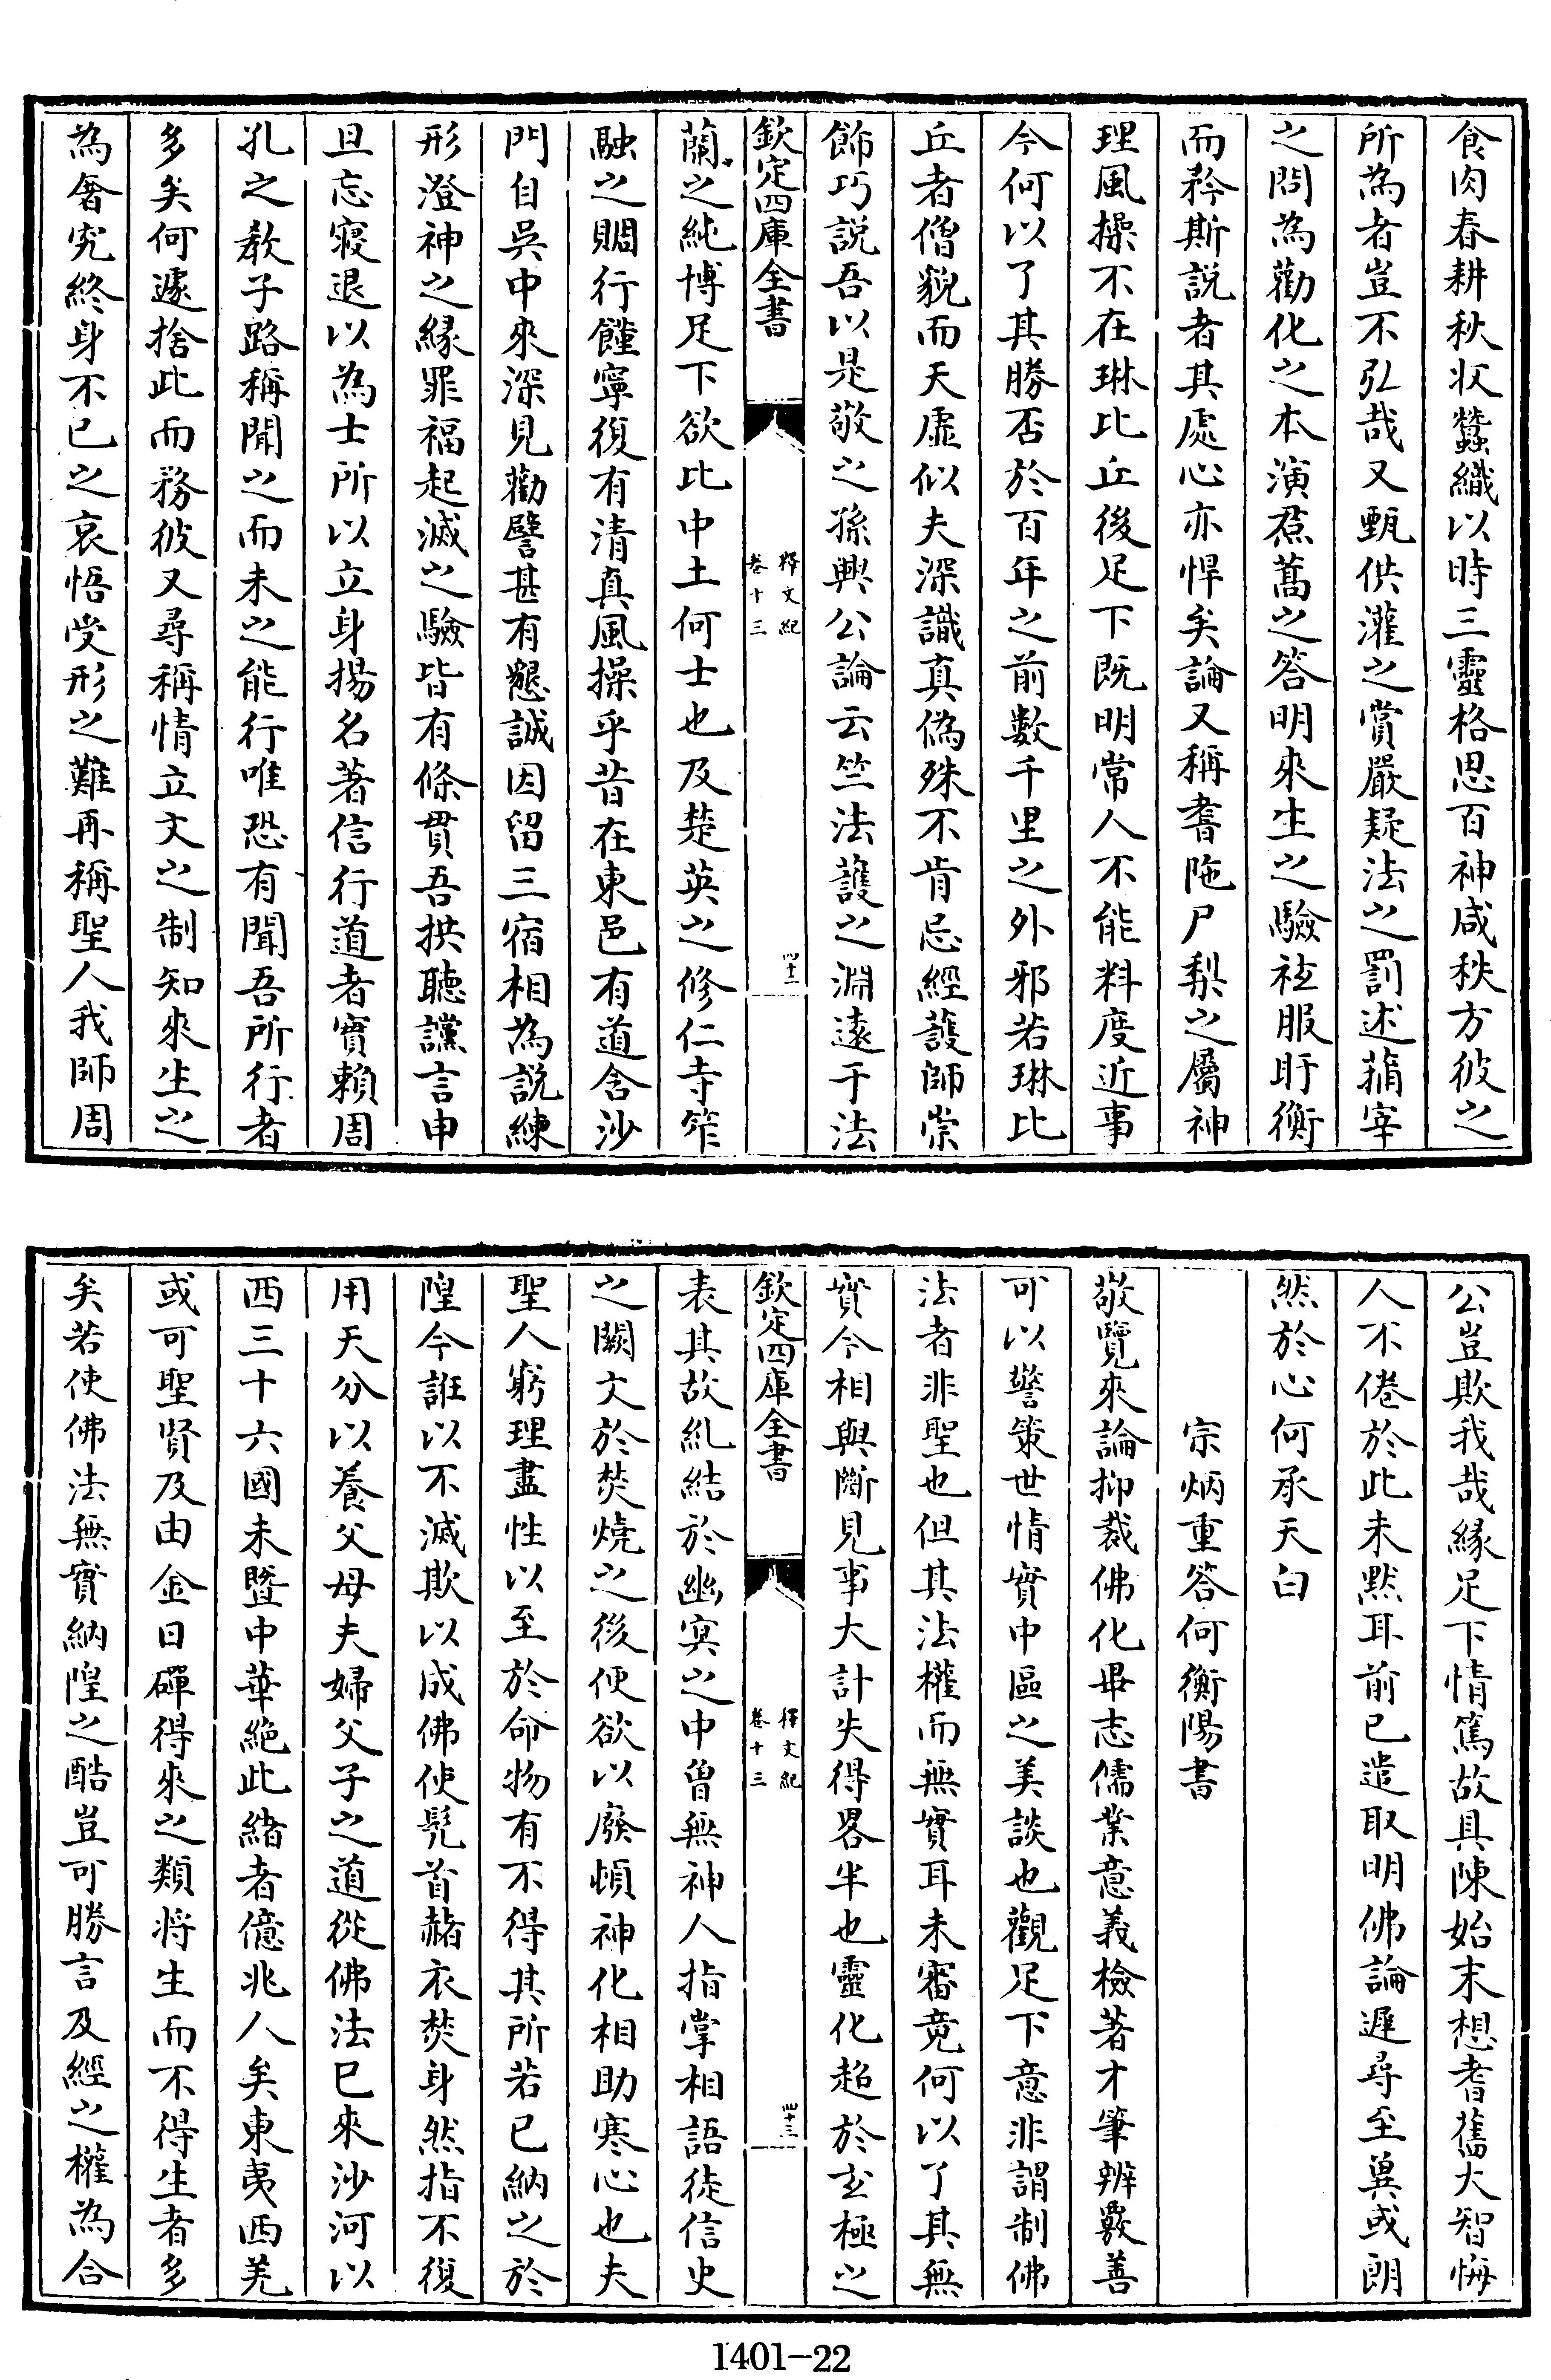 食肉春耕秋收蠶織以時三靈格思百神咸秩方彼之
所為者豈不弘哉又甄供灌之賞嚴疑法之罰述蒱宰
之問為勸化之本演焄蒿之答明來生之驗袪服盱衡
而矜斯説者其處心亦悍矣論又稱耆陁尸梨之屬神
理風操不在琳比丘後足下既明常人不能料度近事
今何以了其勝否於百年之前數千里之外邪若琳比
丘者僧貌而天虛似夫深識真偽殊不肯忌經護師崇
飾巧説吾以是敬之孫興公論云竺法護之淵逺于法
欽定四庫全書
釋文紀
卷十三
四十二
蘭之純博足下欲比中土何士也及楚英之修仁寺笮
融之賙行饉寧復有清真風操乎昔在東邑有道含沙
門自吳中來深見勸譬甚有懇誠因留三宿相為説練
形澄神之縁罪福起滅之驗皆有條貫吾拱聽讜言申
旦忘寢退以為士所以立身揚名著信行道者實賴周
孔之教子路稱聞之而未之能行唯恐有聞吾所行者
多矣何遽捨此而務彼又尋稱情立文之制知來生之
為奢究終身不已之哀悟受形之難再稱聖人我師周
公豈欺我哉縁足下情篤故具陳始末想耆舊大智悔
人不倦於此未黙耳前已遣取明佛論遲尋至冀或朗
然於心何承天白
宗炳重答何衡陽書
敬覽來論抑裁佛化畢志儒業意義檢著才筆辨覈善
可以警策世情實中區之美談也觀足下意非謂制佛
法者非聖也但其法權而無實耳未審竟何以了其無
實今相與斷見事大計失得畧半也靈化超於玄極之
欽定四庫全書
釋文紀
卷十三
四十三
表其故糺結於幽冥之中曽無神人指掌相語徒信史
之闕文於焚燒之後便欲以廢頓神化相助寒心也夫
聖人窮理盡性以至於命物有不得其所若已納之於
隍今誑以不滅欺以成佛使髠首赭衣焚身然指不復
用天分以養父母夫婦父子之道從佛法已來沙河以
西三十六國未暨中華絶此緒者億兆人矣東夷西羌
或可聖賢及由金日磾得來之類將生而不得生者多
矣若使佛法無實納隍之酷豈可勝言及經之權為合
1401-22